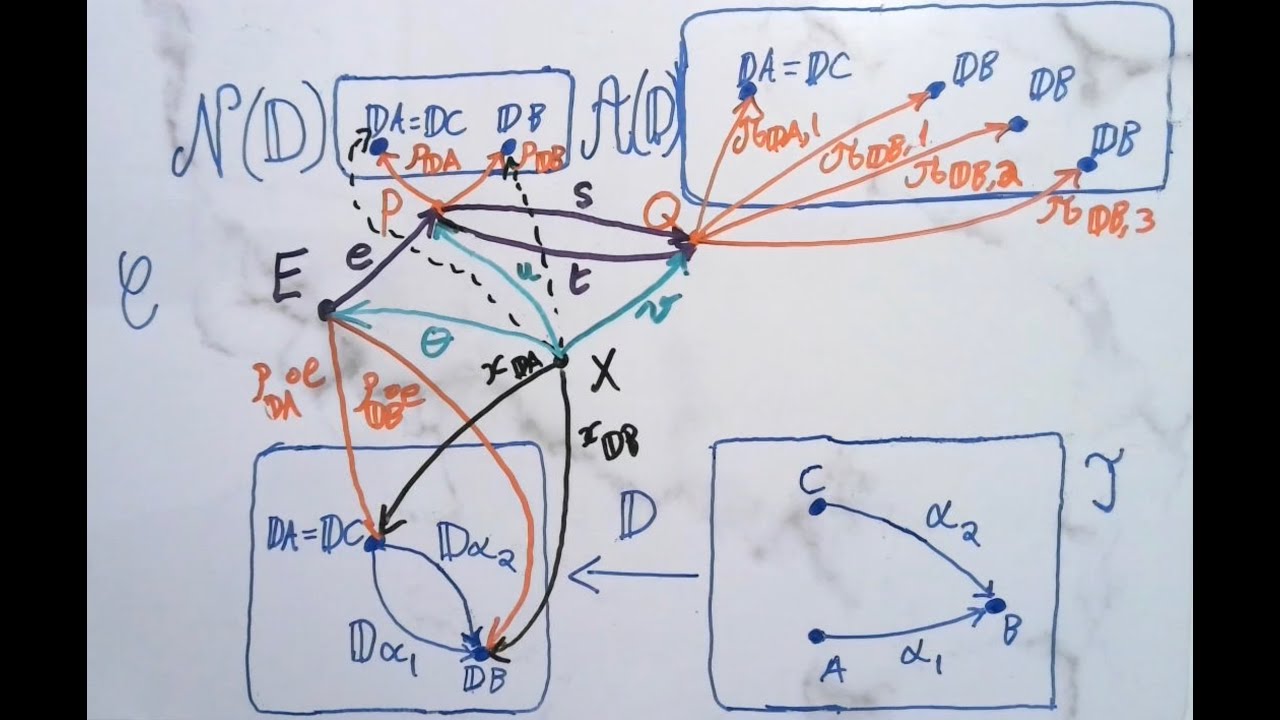 𝒩(𝔻)
𝔻A=𝔻C
𝔻B
ρ𝔻A
ρ𝔻B
𝒜(𝔻)
𝔻A=𝔻C
𝔻B
𝔻B
𝔻B
π𝔻A,1
π𝔻B,1
π𝔻B,2
π𝔻B,3
P
s
Q
E
e
u
t
𝒞
θ
v
x𝔻A
X
ρ𝔻A∘e
ρ𝔻B∘e
x𝔻B
𝔻A=𝔻C
𝔻α2
𝔻α1
𝔻B
𝔻
C
α2
B
A
α1